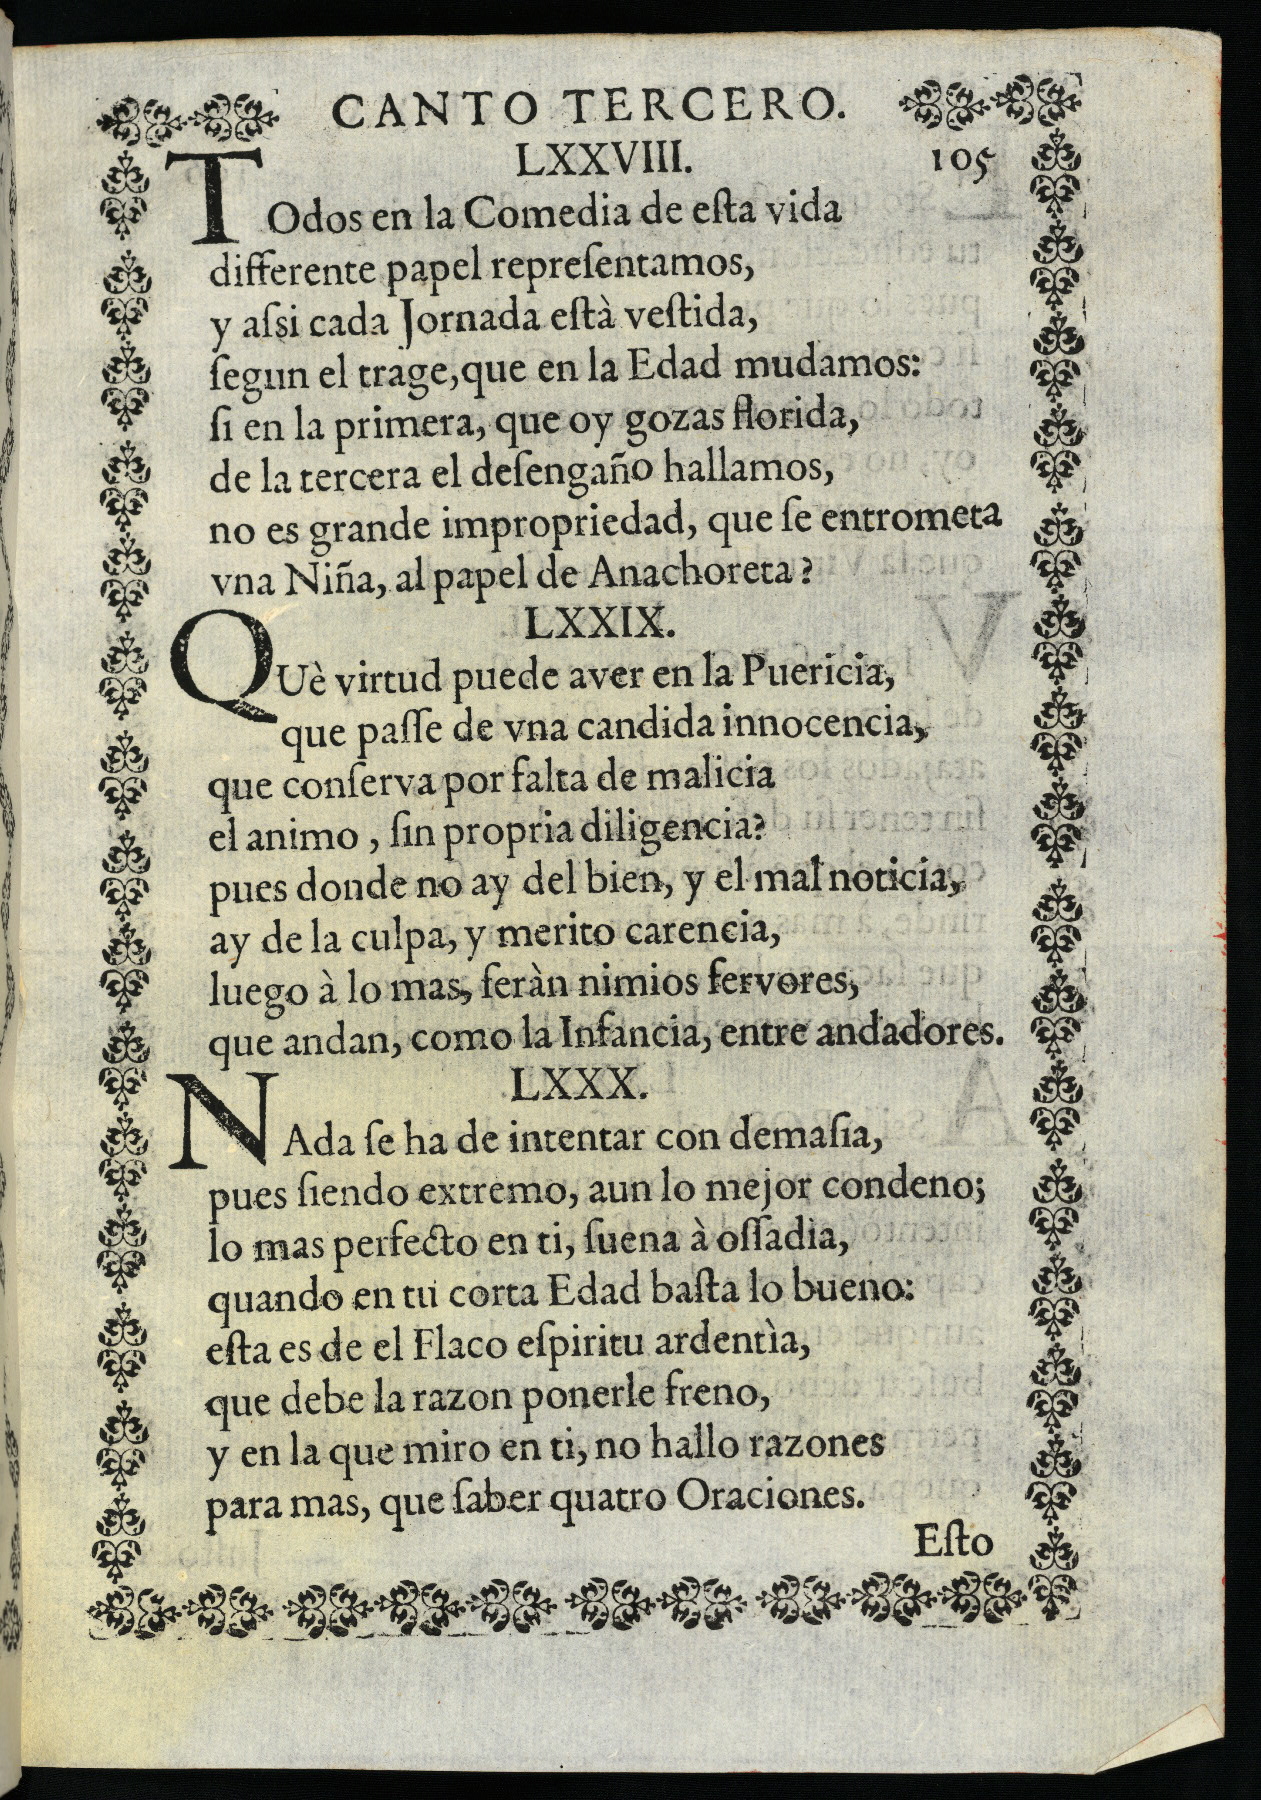 CANTO TERCERO.
LXXVIII. 105
TOdos en la Comedia de eſta vida
differente papel repreſentamos,
y aſsi cada Jornada eſtà veſtida,
ſegun el trage, que en la Edad mudamos:
ſi en la primera, que oy gozas florida,
de la tercera el deſengaño hallamos,
no es grande impropriedad, que ſe entrometa
vna Niña, al papel de Anachoreta?
LXXIX.
QUè virtud puede aver en la Puericia,
que paſſe de vna candida innocencia,
que conſerva por falta de malicia
el animo, ſin propria diligencia?
pues donde no ay del bien, y el mal noticia,
ay de la culpa, y merito carencia,
luego à lo mas, ſeràn nimios fervores,
que andan, como la Infancia, entre andadores.
LXXX.
NAda ſe ha de intentar con demaſia,
pues ſiendo extremo, aun lo mejor condeno;
lo mas perfecto en ti, ſuena à oſſadia,
quando en tu corta Edad baſta lo bueno:
eſta es de el Flaco eſpiritu ardentìa,
que debe la razon ponerle freno,
y en la que miro en ti, no hallo razones
para mas, que ſaber quatro Oraciones.
Eſto